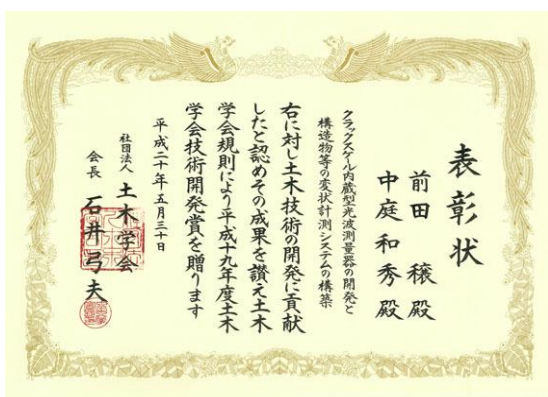 表彰状
前田　穣殿
中庭和秀殿
クラックスケール内蔵型光波測量器の開発と
構造物等の変状計測システムの構築
右に対し土木技術の開発に貢献
したと認めその成果を讃え土木
学会規則により平成十九年度土木
学会技術開発賞を贈ります
平成二十年五月三十日
社団法人　土木学会
会長　石井弓夫